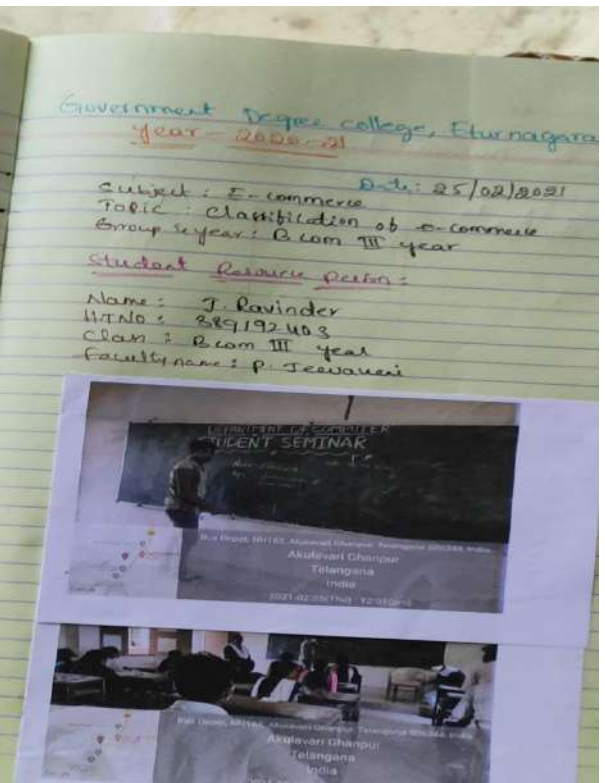 Government Degree college, Eturnagara
Year - 2020-21
Date: 25/02/2021
Subject : E-commerce
Topic : Classification of e-commerce
Group & year: B.com III year
Student Resource Person :
Name : J. Ravinder
H.T.NO : 389192403
Class : B.com III year
Faculty name : P. Jeevaveni
DEPARTMENT OF COMPUTER
STUDENT SEMINAR
Bus Depot, NH163, Akulavari Ghanpur, Telangana 506344, India
Akulavari Ghanpur
Telangana
India
2021-02-25(Thu) 12:01(pm)
Bus Depot, NH163, Akulavari Ghanpur, Telangana 506344, India
Akulavari Ghanpur
Telangana
India